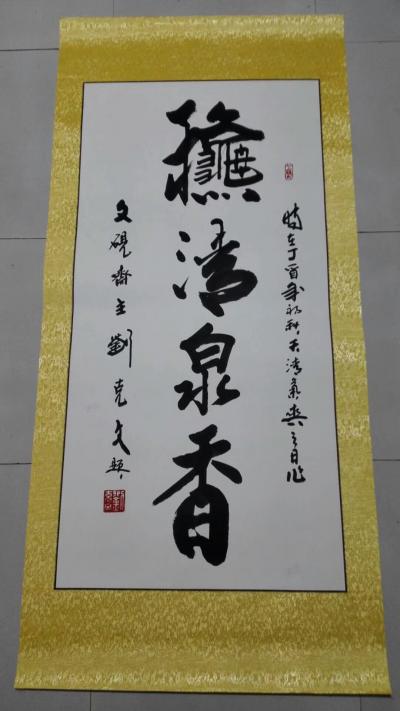 時在丁酉年初秋天清氣爽之日作
龝清泉香
文硯齋主劉克文題